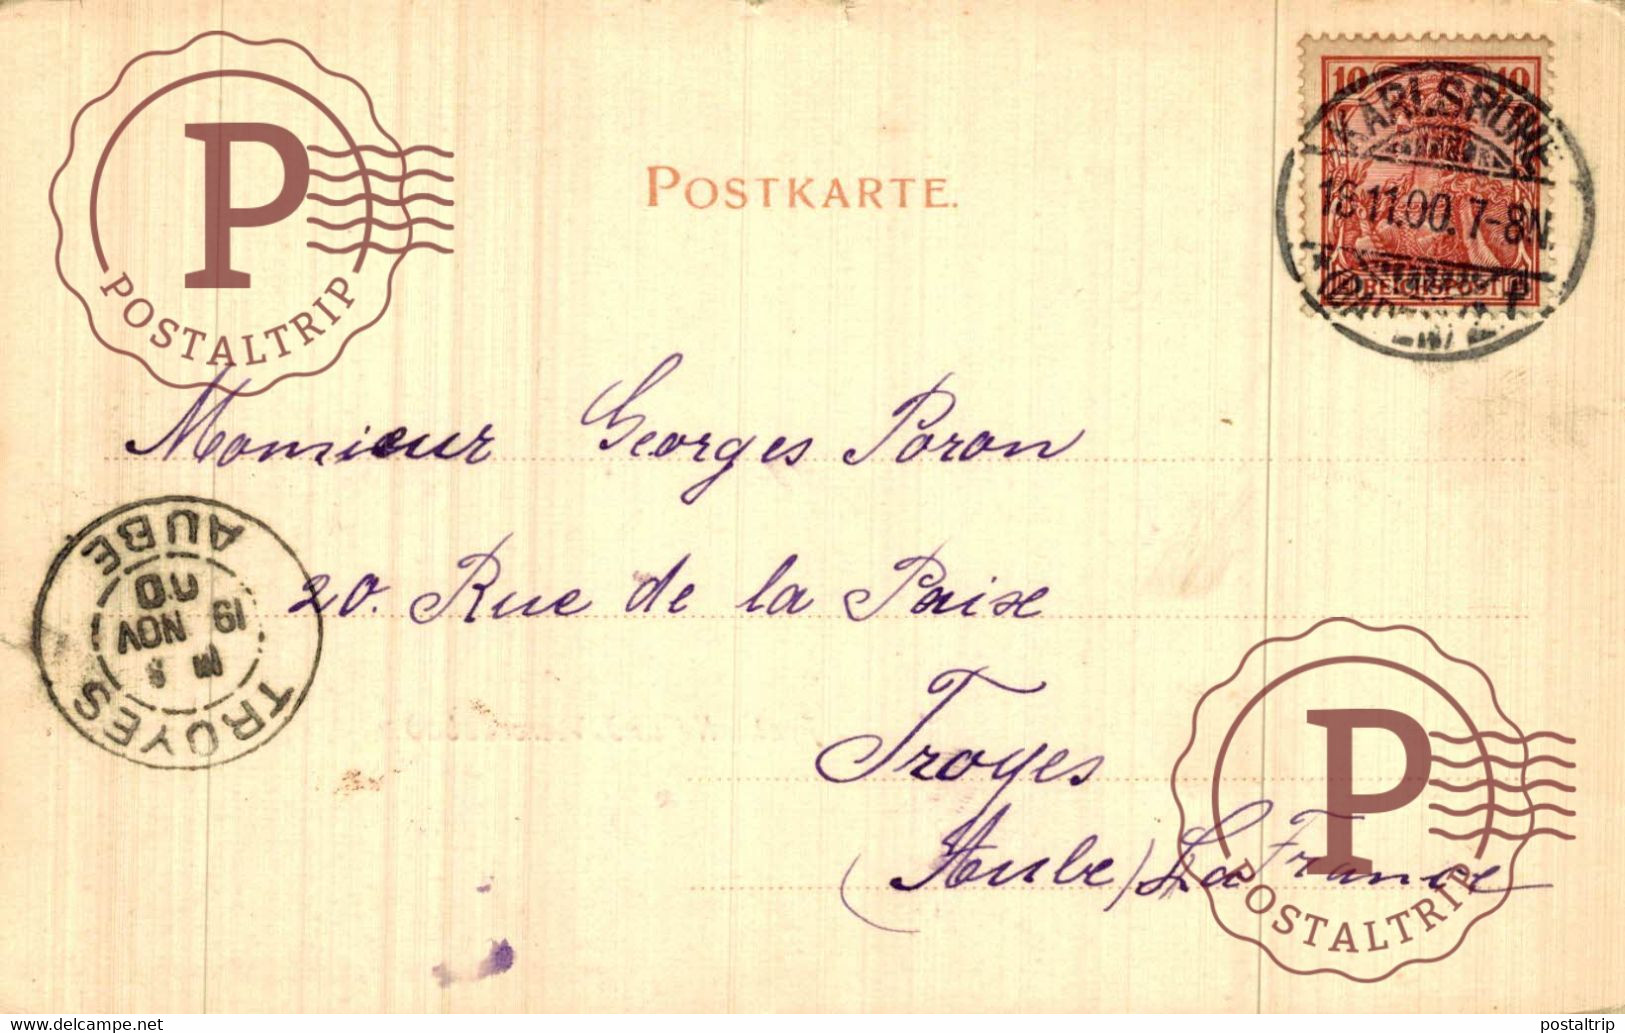 POSTALTRIP
POSTKARTE.
10 10
KARLSRUHE
16.11.00. 7-8N.
REICHSPOST
Monsieur Georges Poron
20. Rue de la Paix
Troyes
(Aube) La France
TROYES
19 NOV
00
AUBE
POSTALTRIP
www.delcampe.net
postaltrip